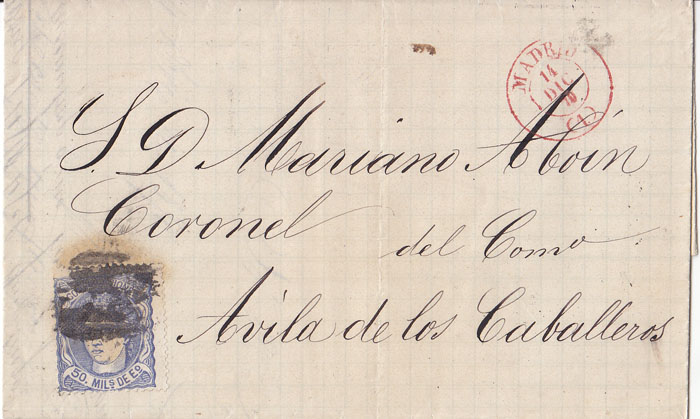 MADRID
14
DIC
70
(1)
S. D. Mariano Aboín
Coronel del Com.º
Avila de los Caballeros
50. MIL.S DE E.º